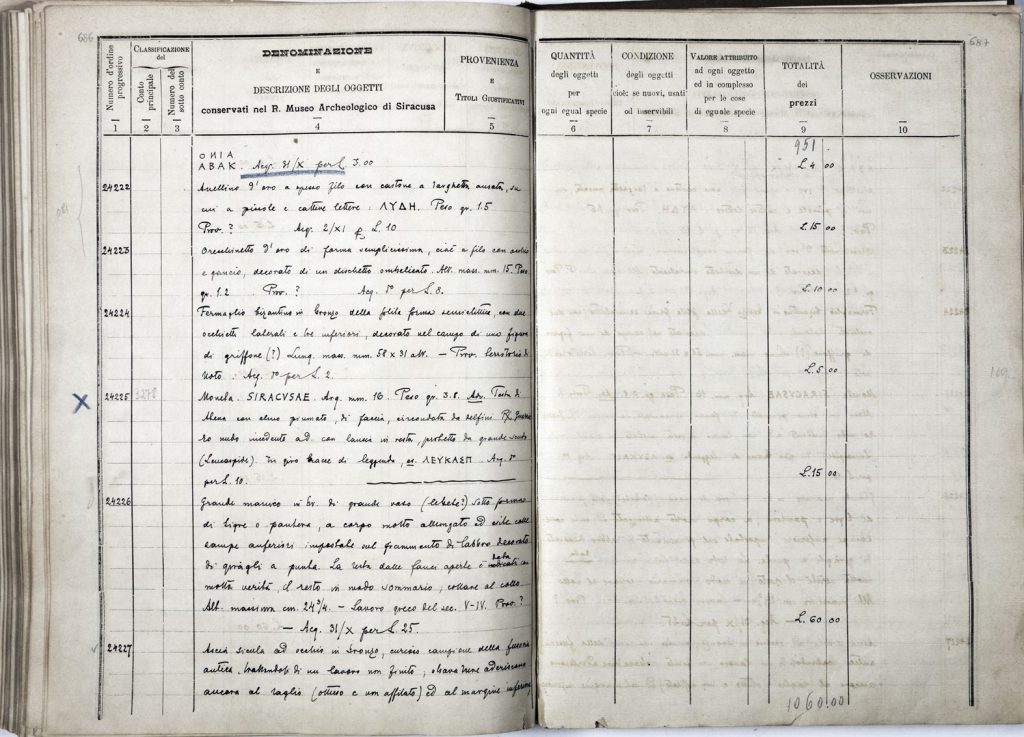 686
Numero d'ordine progressivo
CLASSIFICAZIONE del
Conto principale
Numero del sotto conto
DENOMINAZIONE
E
DESCRIZIONE DEGLI OGGETTI
conservati nel R. Museo Archeologico di Siracusa
PROVENIENZA
E
TITOLI GIUSTIFICATIVI
1 2 3 4 5
ΟΝΙΑ
ΑΒΑΚ. Acq. 31/X per L. 3.00
24222 Anellino d'oro a spesso filo con castone a targhetta ansata, su
cui a piccole e cattive lettere: ΛΥΔΗ. Peso gr. 1.5
Prov. ? Acq. 2/XI p. L. 10
24223 Orecchinetto d'oro di forma semplicissima, cioè a filo con
e gancio, decorato di un dischetto ombelicato. Alt. mass. mm. 15. Peso
gr. 1.2 Prov. ? Acq. per L. 8.
24224 Fermaglio bizantino in bronzo della solita forma semiellittica, con due
occhietti laterali e tre inferiori, decorato nel campo di una figura
di griffone (?) Lung. mass. mm. 58 x 31 alt. — Prov. territorio di
Noto. Acq. per L. 2.
X 24225 3278 Moneta. SIRACVSAE. Arg. mm. 16. Peso gr. 3.8. Adv. Testa di
Atena con elmo piumato, di faccia, circondata da delfini
nudo incedente ad. con lancia in resta, protetto da grande scudo
(Leucaspide). In giro tracce di leggenda, ΛΕΥΚΑΣΠ. Acq.
per L. 10.
24226 Grande manico in br. di grande vaso (lebete?) sotto forma
di tigre o pantera, a corpo molto allungato ed esile colle
zampe anteriori impostate sul frammento di labbro decorato
di a punta. La testa dalle fauci aperte è
data
molta verità, il resto in modo sommario, collare al collo
Alt. massima cm. 24 3/4. — Lavoro greco del sec. V-IV. Prov. ?
— Acq. 31/X per L. 25.
24227 Ascia sicula ad occhio in bronzo, curioso campione della
antica, trattandosi di un lavoro non finito,
ancora al taglio (ottuso e non affilato) ed al margine inferiore
687
QUANTITÀ
degli oggetti
per
ogni egual specie
CONDIZIONE
degli oggetti
cioè: se nuovi, usati
od inservibili
VALORE ATTRIBUITO
ad ogni oggetto
ed in complesso
per le cose
di eguale specie
TOTALITÀ
dei
prezzi
OSSERVAZIONI
6 7 8 9 10
951
L. 4 00
L. 15 00
L. 10 00
L. 5 00
L. 15 00
L. 60 00
1060.00